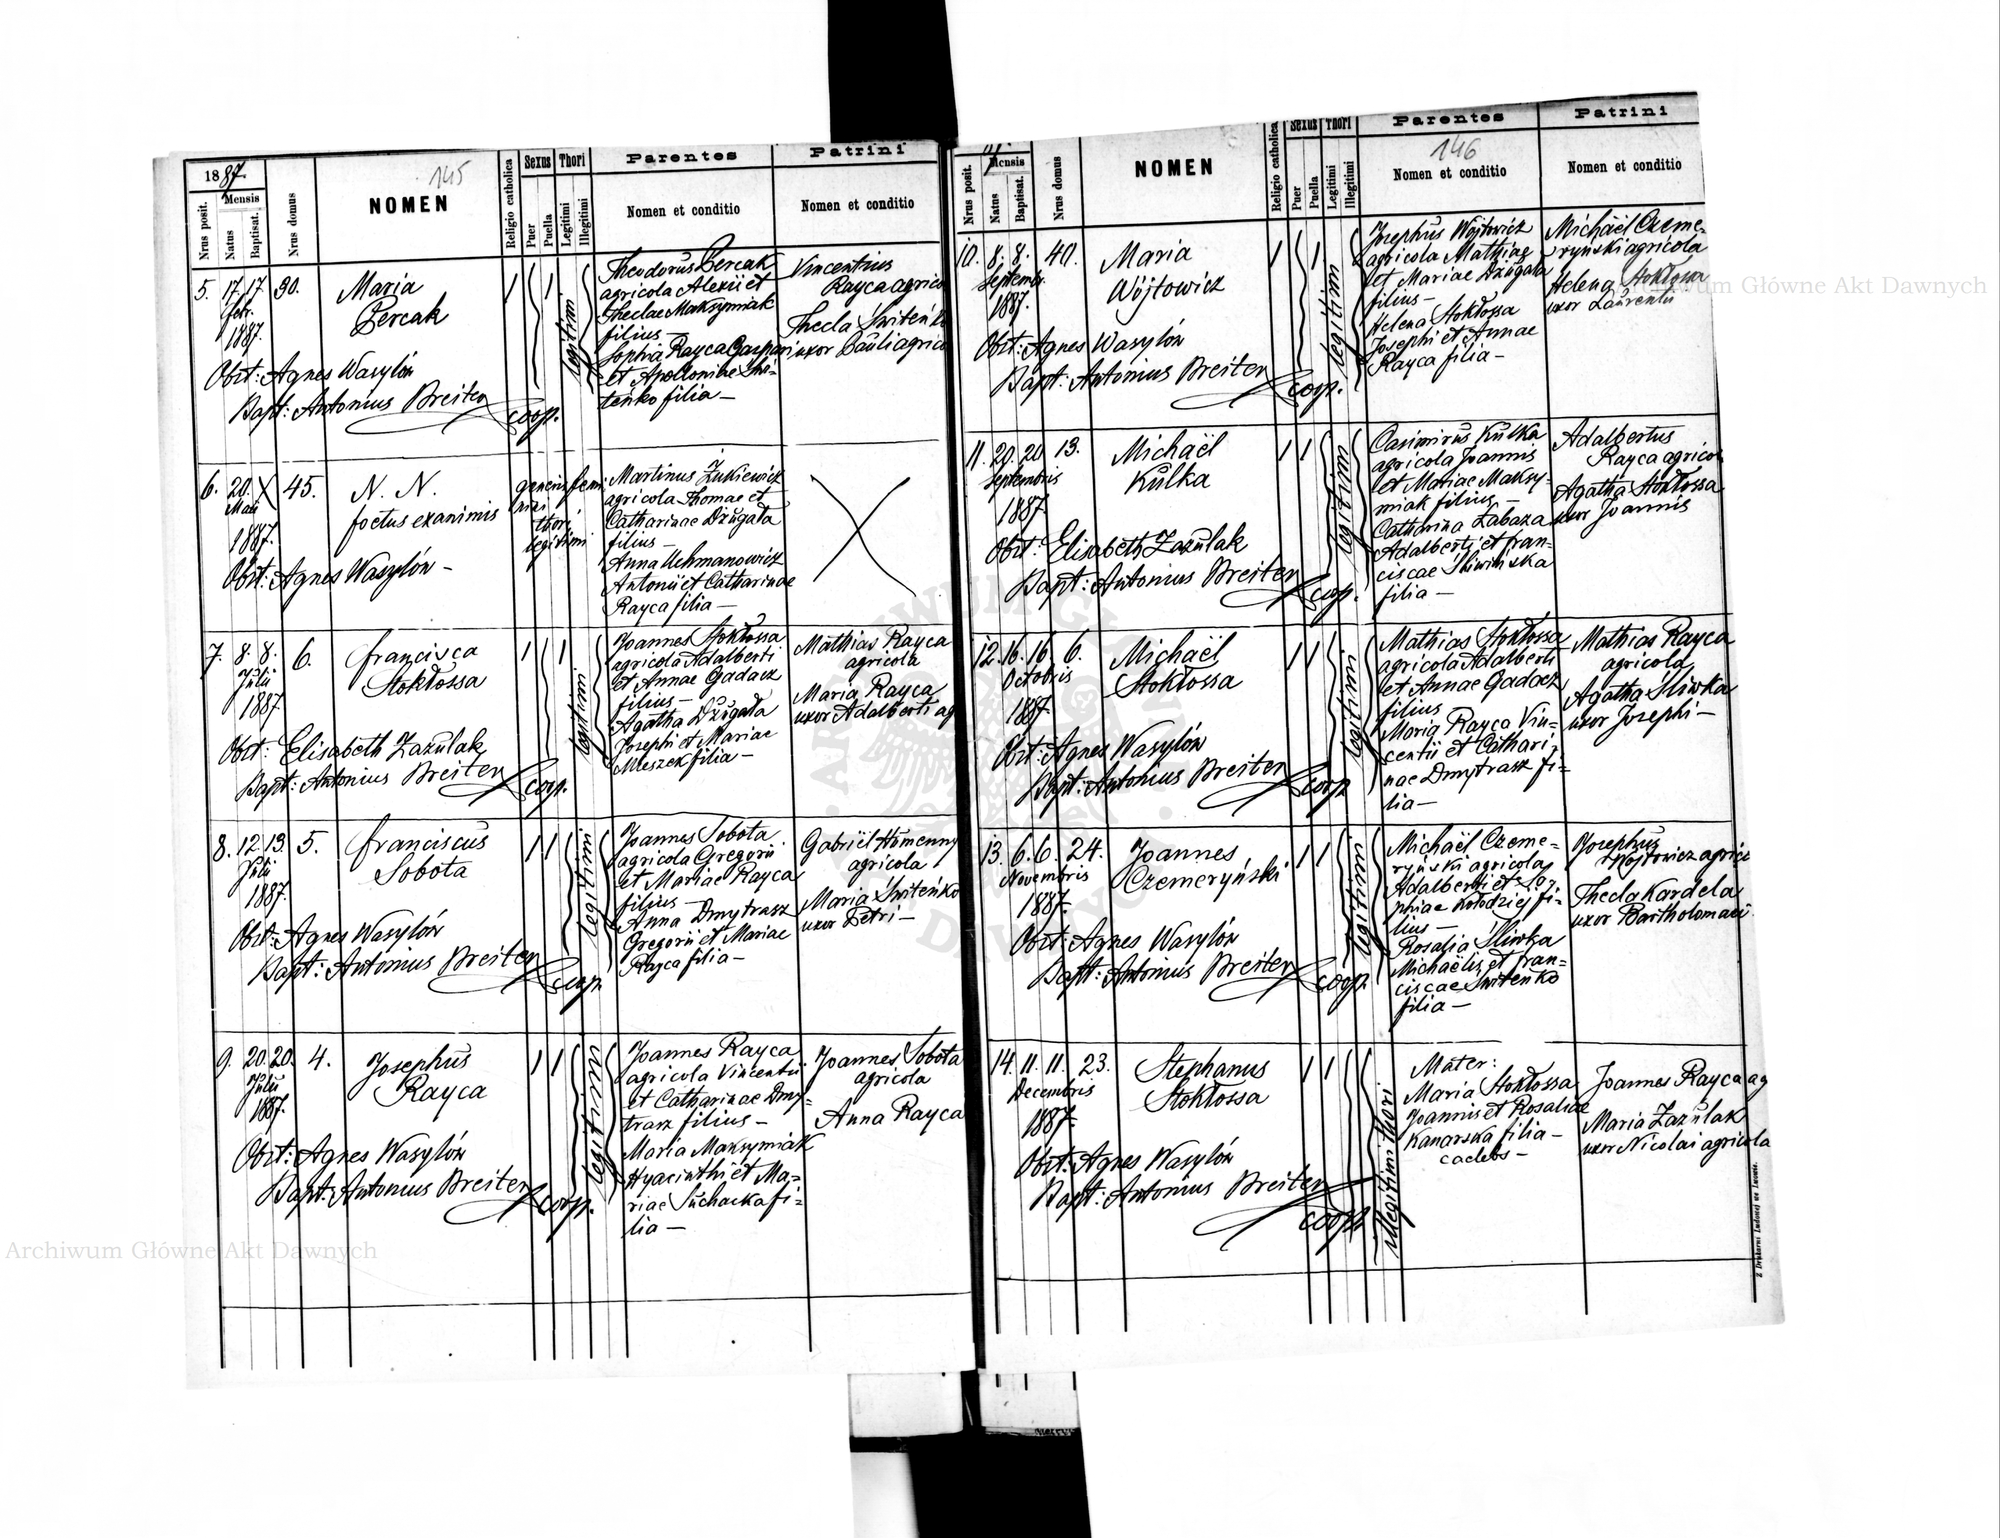 145
1887.
Nrus posit.
Mensis
Natus
Baptisat.
Nrus domus
NOMEN
Religio catholica
Sexus
Puer
Puella
Thori
Legitimi
Illegitimi
Parentes
Nomen et conditio
Patrini
Nomen et conditio
5. 17. 17. 30.
1887.
Maria
Percak
1 1
legitimi
Obst: Agnes Wasylów
Bapt: Antonius Breiter
coop.
Theodorus Percak
agricola Alexii et
Theclae Maksymiak
filius —
Sophia Rayca Gaspari
et Apolloniae Swi-
tenko filia —
Vincentius
Rayca agrico
Thecla Switeńko
uxor Pauli agrico
6. 20. X 45.
Maii
1887.
N. N.
foetus exanimis
generis femi
nini
thori
legitimi
Obst: Agnes Wasylów —
Martinus Żukiewicz
agricola Thomae et
Catharinae Dżugała
filius —
Anna Uchmanowicz
Antonii et Catharinae
Rayca filia —
7. 8. 8. 6.
Julii
1887.
Francisca
Stokłossa
1 1
legitimi
Obst: Elisabeth Zazulak
Bapt: Antonius Breiter
coop.
Joannes Stokłossa
agricola Adalberti
et Annae Gadacz
filius —
Agatha Dżugała
Josephi et Mariae
Meszek filia —
Mathias Rayca
agricola
Maria Rayca
uxor Adalberti ag
8. 12. 13. 5.
Julii
1887.
Franciscus
Sobota
1 1
legitimi
Obst: Agnes Wasylów
Bapt: Antonius Breiter
coop.
Joannes Sobota
agricola Gregorii
et Mariae Rayca
filius —
Anna Dmytrasz
Gregorii et Mariae
Rayca filia —
Gabriël Homenny
agricola
Maria Switeńko
uxor Petri —
9. 20. 20. 4.
Julii
1887.
Josephus
Rayca
1 1
legitimi
Obst: Agnes Wasylów
Bapt: Antonius Breiter
coop.
Joannes Rayca
agricola Vincentii
et Catharinae Dmy-
trasz filius —
Maria Maksymiak
Hyacinthi et Ma-
riae Suchacka fi-
lia —
Joannes Sobota
agricola
Anna Rayca
146
Nrus posit.
Mensis
Natus
Baptisat.
Nrus domus
NOMEN
Religio catholica
Sexus
Puer
Puella
Thori
Legitimi
Illegitimi
Parentes
Nomen et conditio
Patrini
Nomen et conditio
10. 8. 8. 40.
Septembr.
1887.
Maria
Wójtowicz
1 1
legitimi
Obst: Agnes Wasylów
Bapt: Antonius Breiter
coop.
Josephus Wójtowicz
agricola Mathiae
et Mariae Dżugała
filius —
Helena Stokłossa
Josephi et Annae
Rayca filia —
Michaël Czeme-
ryński agricola
Helena Stokłossa
uxor Laurentii
11. 20. 20. 13.
Septembris
1887.
Michaël
Kulka
1 1
legitimi
Obst: Elisabeth Zazulak
Bapt: Antonius Breiter
coop.
Casimirus Kulka
agricola Joannis
et Mariae Maksy-
miak filius —
Catharina Łabaza
Adalberti et Fran-
ciscae Śliwińska
filia —
Adalbertus
Rayca agricol
Agatha Stokłossa
uxor Joannis
12. 16. 16. 6.
Octobris
1887.
Michaël
Stokłossa
1 1
legitimi
Obst: Agnes Wasylów
Bapt: Antonius Breiter
coop.
Mathias Stokłossa
agricola Adalberti
et Annae Gadacz
filius
Maria Rayca Vin-
centii et Cathari-
nae Dmytrasz fi-
lia —
Mathias Rayca
agricola
Agatha Śliwka
uxor Josephi —
13. 6. 6. 24.
Novembris
1887.
Joannes
Czemeryński
1 1
legitimi
Obst: Agnes Wasylów
Bapt: Antonius Breiter
coop.
Michaël Czeme-
ryński agricola
Adalberti et So-
phiae Kołodziej fi-
lius —
Rosalia Śliwka
Michaëlis et Fran-
ciscae Switeńko
filia —
Josephus
Wójtowicz agric
Thecla Kardela
uxor Bartholomaei
14. 11. 11. 23.
Decembris
1887.
Stephanus
Stokłossa
1 1
illegitimi thori
Obst: Agnes Wasylów
Bapt: Antonius Breiter
coop.
Mater:
Maria Stokłossa
Joannis et Rosaliae
Kanarska filia —
caelebs —
Joannes Rayca ag
Maria Zazulak
uxor Nicolai agricola
Z Drukarni Ludowej we Lwowie.
Archiwum Główne Akt Dawnych
Archiwum Główne Akt Dawnych